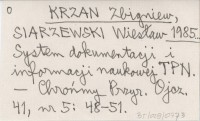 0
KRZAN Zbigniew,
SIARZEWSKI Wiesław 1985.
System dokumentacji i
informacji naukowej TPN.
— Chrońmy Przyr. Ojcz.
41, nr 5: 48-51.